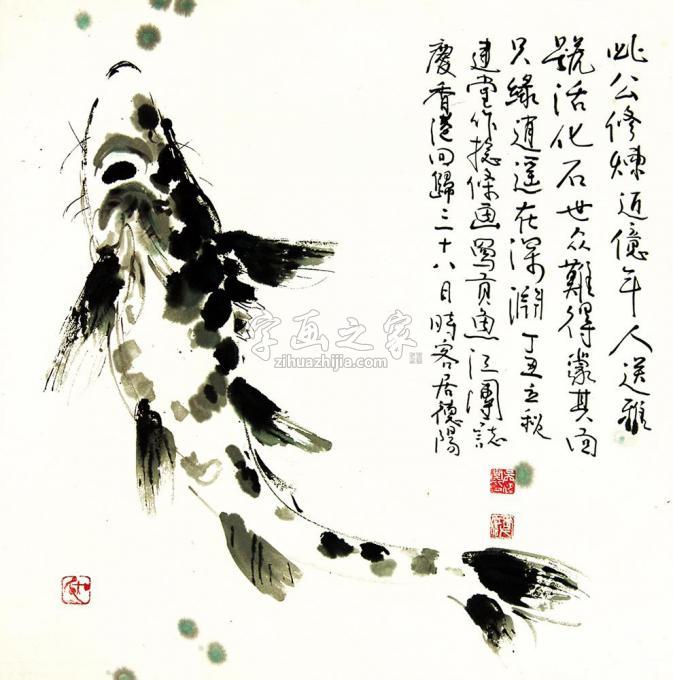 此公修煉近億年人送雅
號活化石世众難得蒙其面
只緣逍遥在深淵丁丑立秋
建堂作捻條画 魚江團誌
慶香港回歸三十八日時客居德陽
字画之家
zihuazhijia.com